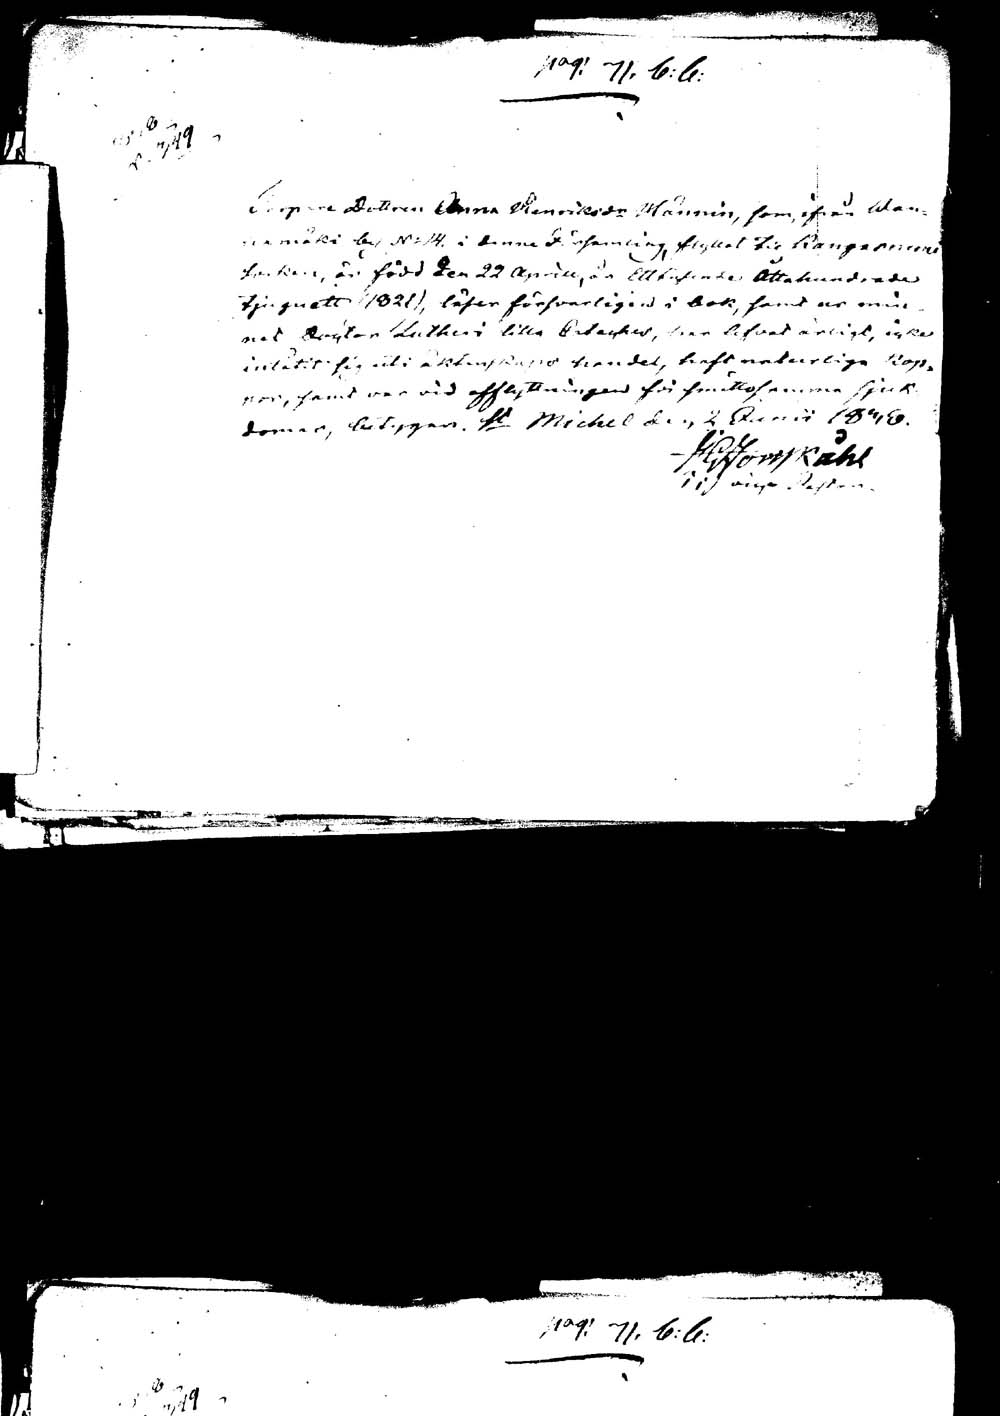 pag: 71. C: C:
Torpare Dottren Anna Henriksdr Männin, som, ifrån Wan-
namäki by No 14. i denna Församling, flyttat till Kangasniemi
Socken, är född den 22 April, år Ettusende Åttahundrade
tjuguett (1821), läser försvarligen i bok, samt ur min-
net Doctor Lutheri lilla Cateches, har lefvat ärligt, icke
inlåtit sig uti äktenskaps handel, haft naturliga Kop-
por, samt var vid afflyttningen fri smittosamma sjuk-
domar, betygar. St Michel den 2 Junii
vice Pastor.
pag: 71. C: C: